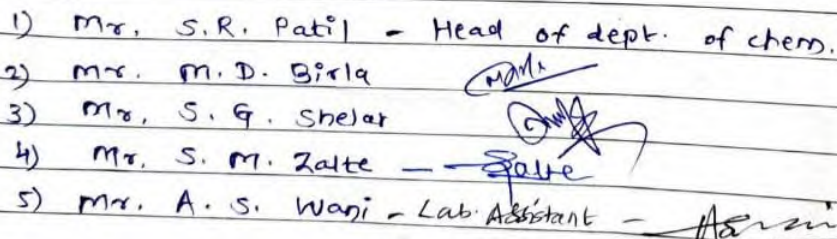 1) Mr. S.R. Patil - Head of dept. of chem.
2) Mr. M.D. Birla
3) Mr. S. G. Shelar
4) Mr. S. M. Zalte - - Zalte
5) Mr. A. S. Wani - Lab. Assistant -